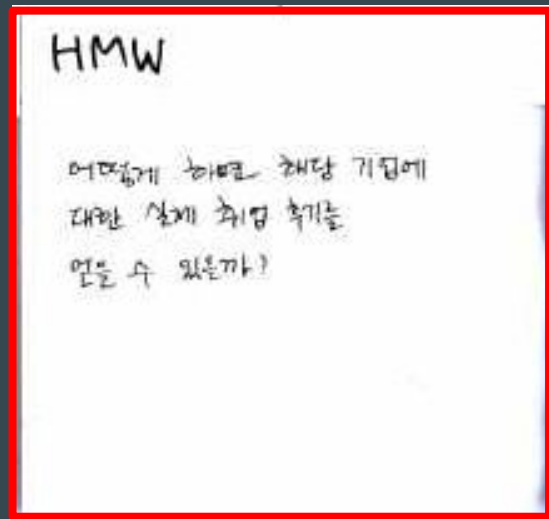 HMW
어떻게 하면 해당 기업에
대한 실제 취업 후기를
얻을 수 있을까?